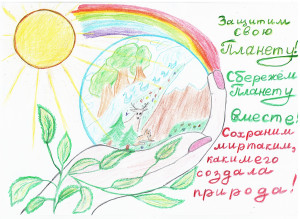 Защитим
свою
Планету!
Сбережём
Планету
Вместе!
Сохраним
мир таким,
каким его
создала
природа!